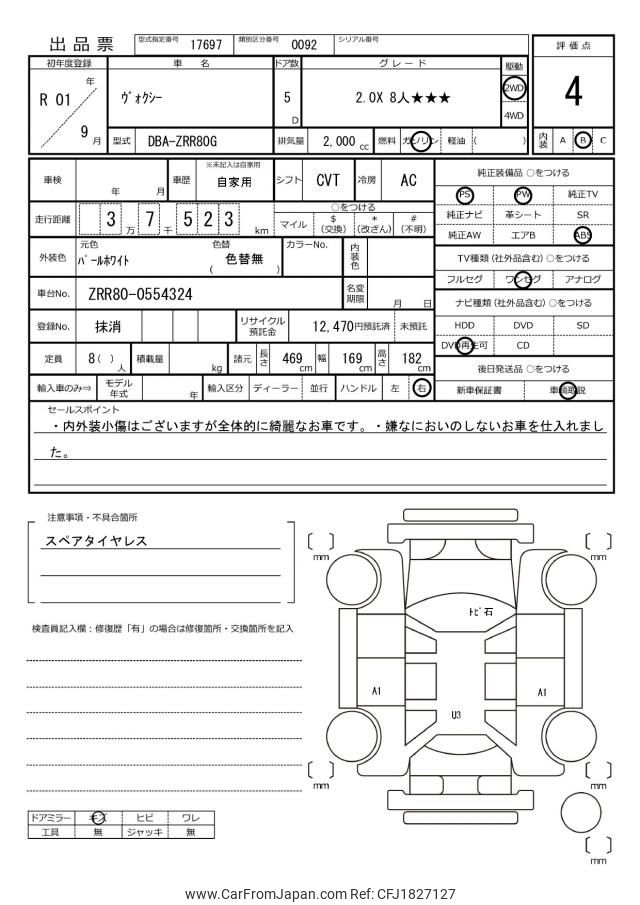 出品票 型式指定番号 17697 類別区分番号 0092 シリアル番号
評価点
初年度登録 車 名 ドア数 グレード 駆動
R 01 年 ヴォクシー 5 D 2.0X 8人★★★ 2WD 4
9 月 4WD
型式 DBA-ZRR80G 排気量 2,000 cc 燃料 ガソリン 軽油 ( ) 内装 A B C
車検 年 月 車歴 ※未記入は自家用 自家用 シフト CVT 冷房 AC 純正装備品 ○をつける
PS PW 純正TV
走行距離 3 万 7 千 5 2 3 km ○をつける 純正ナビ 革シート SR
マイル $ (交換) * (改ざん) # (不明) 純正AW エアB ABS
外装色 元色 パールホワイト 色替 ( 色替無 ) カラーNo. 内装色 TV種類 (社外品含む) ○をつける
フルセグ ワンセグ アナログ
車台No. ZRR80-0554324 名変期限 月 日 ナビ種類 (社外品含む) ○をつける
登録No. 抹消 リサイクル預託金 12,470円預託済 未預託 HDD DVD SD
DVD再生可 CD
定員 8 ( ) 人 積載量 kg 諸元 長さ 469 cm 幅 169 cm 高さ 182 cm 後日発送品 ○をつける
輸入車のみ⇒ モデル年式 年 輸入区分 ディーラー 並行 ハンドル 左 右 新車保証書 車輌取説
セールスポイント
・内外装小傷はございますが全体的に綺麗なお車です。・嫌なにおいのしないお車を仕入れまし
た。
注意事項・不具合箇所
スペアタイヤレス
検査員記入欄：修復歴「有」の場合は修復箇所・交換箇所を記入
mm mm
トビ石
A1 A1
U3
mm mm
mm
ドアミラー キズ ヒビ ワレ
工具 無 ジャッキ 無
www.CarFromJapan.com Ref: CFJ1827127